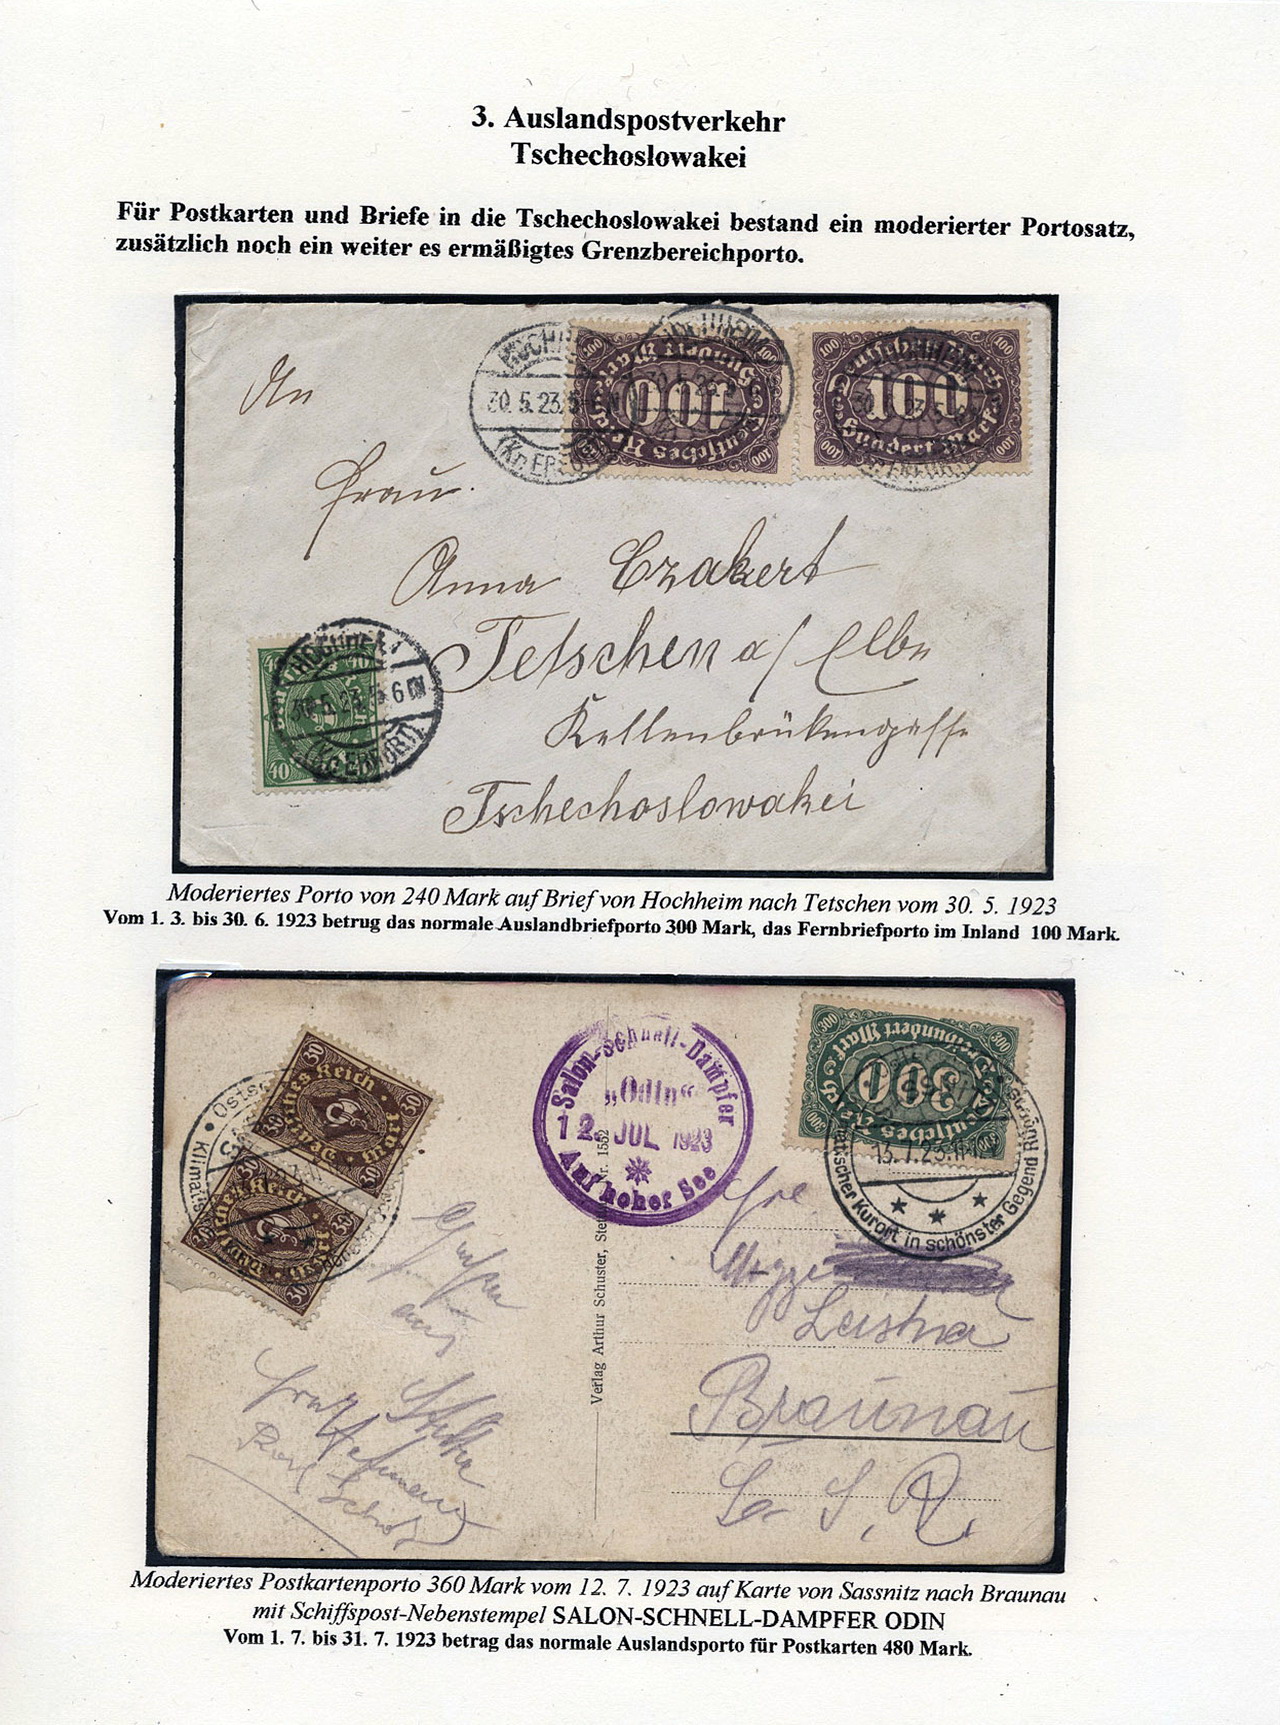 3. Auslandspostverkehr
Tschechoslowakei
Für Postkarten und Briefe in die Tschechoslowakei bestand ein moderierter Portosatz,
zusätzlich noch ein weiter es ermäßigtes Grenzbereichporto.
An
Frau.
Anna Czakert
Tetschen a/ Elbe
Kettenbrükengasse
Tschechoslowakei
HOCHHEIM
30.5.23.
(Kr. ERFURT)
100
Deutsches Reich
Hundert Mark
100
Deutsches Reich
Hundert Mark
40
HOCHHEIM
30.5.23. 5-6 N
(Kr. ERFURT)
Moderiertes Porto von 240 Mark auf Brief von Hochheim nach Tetschen vom 30. 5. 1923
Vom 1. 3. bis 30. 6. 1923 betrug das normale Auslandbriefporto 300 Mark, das Fernbriefporto im Inland 100 Mark.
30
Deutsches Reich
Mark
30
Salon-Schnell-Dampfer
„Odin“
12. JUL 1923
Auf hoher See
300
Deutsches Reich
Dreihundert Mark
13.7.23.
Kurort in schönster Gegend Rügens
Verlag Arthur Schuster, Nr. 1552
Grüße
aus
Leistna
Braunau
Č S. R.
Moderiertes Postkartenporto 360 Mark vom 12. 7. 1923 auf Karte von Sassnitz nach Braunau
mit Schiffspost-Nebenstempel SALON-SCHNELL-DAMPFER ODIN
Vom 1. 7. bis 31. 7. 1923 betrag das normale Auslandsporto für Postkarten 480 Mark.